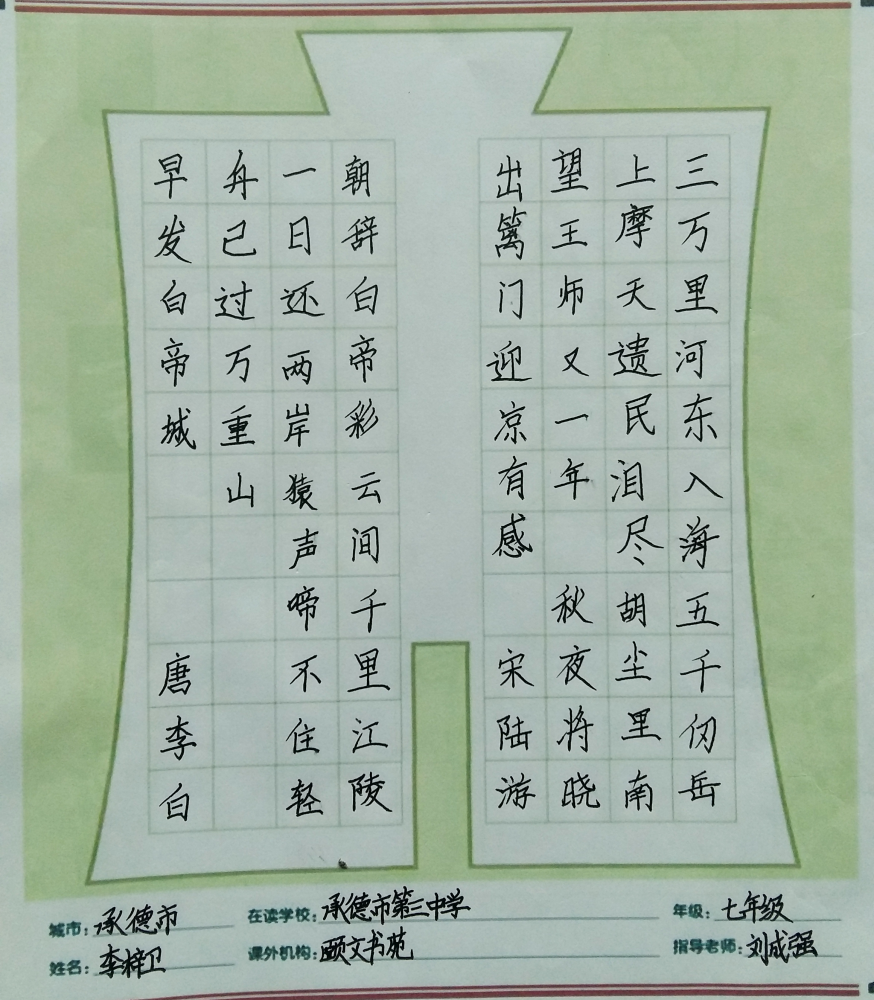 三万里河东入海五千仞岳
上摩天遗民泪尽胡尘里南
望王师又一年 秋夜将晓
出篱门迎凉有感 宋陆游
朝辞白帝彩云间千里江陵
一日还两岸猿声啼不住轻
舟已过万重山
早发白帝城 唐李白
城市：承德市 在读学校：承德市第三中学 年级：七年级
姓名：李梓卫 课外机构：颐文书苑 指导老师：刘成强